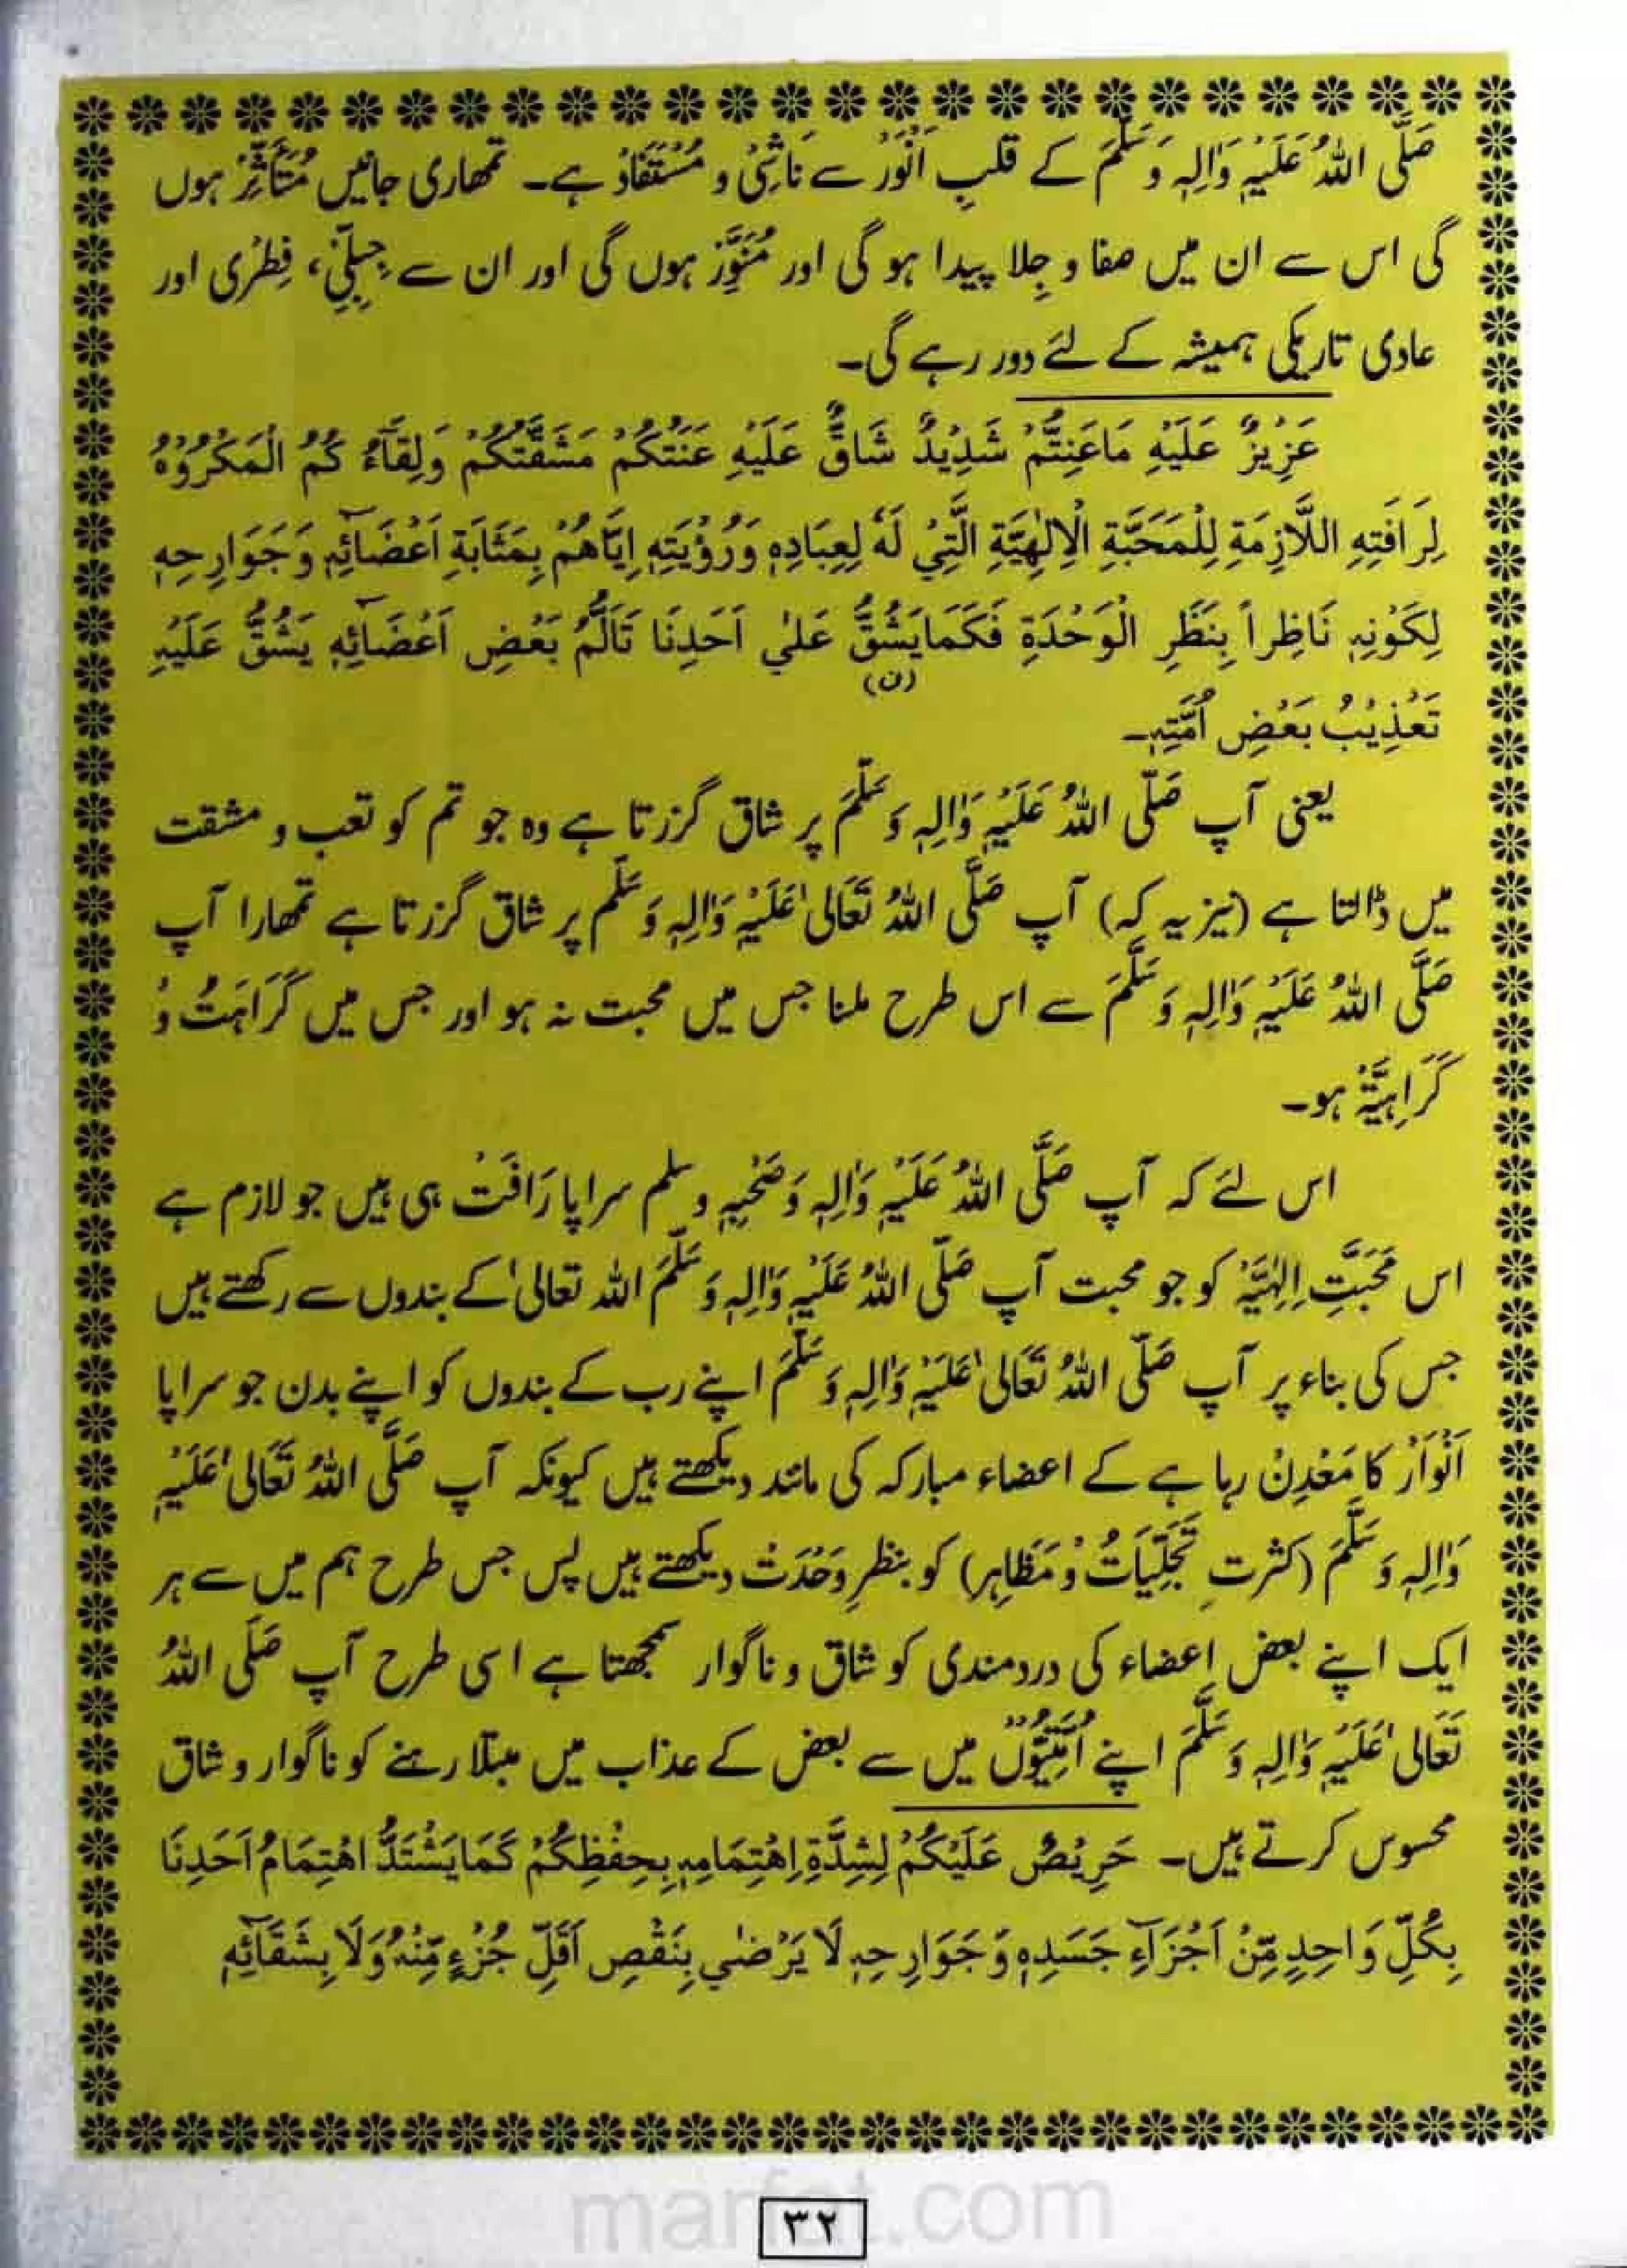 صَلَّی اللہُ عَلَیْہِ وَاٰلِہٖ وَسَلَّمَ کے قلبِ اَنْوَرْ سے نَاشِیْ و مُسْتَفَادْ ہے۔ تمھاری جانیں مُتَأَثِّرْ ہوں
گی اس سے ان میں صفا و جِلا پیدا ہو گی اور مُنَوَّرْ ہوں گی اور ان سے جِبِلِّیْ، فِطْرِی اور
عادی تاریکی ہمیشہ کے لئے دور رہے گی۔
عَزِیْزٌ عَلَیْہِ مَاعَنِتُّمْ شَدِیْدٌ شَاقٌّ عَلَیْہِ عَنَتُکُمْ مَشَقَّتُکُمْ وَلِقَآءُ کُمُ الْمَکْرُوْہُ
لِرَافَتِہِ اللَّازِمَۃِ لِلْمَحَبَّۃِ الْاِلٰہِیَّۃِ الَّتِیْ لَہٗ لِعِبَادِہٖ وَرُؤْیَتِہٖ اِیَّاھُمْ بِمَثَابَۃِ اَعْضَآئِہٖ وَجَوَارِحِہٖ
لِکَوْنِہٖ نَاظِراً بِنَظَرِ الْوَحْدَۃِ فَکَمَایَشُقُّ عَلیٰ اَحَدِنَا تَاَلُّمُ بَعْضِ اَعْضَآئِہٖ یَشُقُّ عَلَیْہِ
(ن)
تَعْذِیْبُ بَعْضِ اُمَّتِہٖ۔
یعنی آپ صَلَّی اللہُ عَلَیْہِ وَاٰلِہٖ وَسَلَّمَ پر شاق گزرتا ہے وہ جو تم کو تعب و مشقت
میں ڈالتا ہے (نیز یہ کہ) آپ صَلَّی اللہُ تَعَالیٰ عَلَیْہِ وَاٰلِہٖ وَسَلَّم پر شاق گزرتا ہے تمھارا آپ
صَلَّی اللہُ عَلَیْہِ وَاٰلِہٖ وَسَلَّمَ سے اس طرح ملنا جس میں محبت نہ ہو اور جس میں کَرَاہَتْ وْ
کَرَاہِیَّۃْ ہو۔
اس لئے کہ آپ صَلَّی اللہُ عَلَیْہِ وَاٰلِہٖ وَصَحْبِہٖ وسلم سراپا رَافَتْ ہی ہیں جو لازم ہے
اس مَحَبَّتِ اِلٰہِیَّہْ کو جو محبت آپ صَلَّی اللہُ عَلَیْہِ وَاٰلِہٖ وَسَلَّمَ اللہ تعالیٰ کے بندوں سے رکھتے ہیں
جس کی بناء پر آپ صَلَّی اللہُ تَعَالیٰ عَلَیْہِ وَاٰلِہٖ وَسَلَّمَ اپنے رب کے بندوں کو اپنے بدن جو سراپا
اَنْوَارْ کا مَعْدِنْ رہا ہے کے اعضاء مبارکہ کی مانند دیکھتے ہیں کیونکہ آپ صَلَّی اللہُ تَعَالیٰ عَلَیْہِ
وَاٰلِہٖ وَسَلَّمَ (کثرتِ تَجَلِّیَاتْ وْ مَظَاہِر) کو بنظرِ وَحْدَتْ دیکھتے ہیں پس جس طرح ہم میں سے ہر
ایک اپنے بعض اعضاء کی دردمندی کو شاق و ناگوار سمجھتا ہے اسی طرح آپ صَلَّی اللہُ
تَعَالیٰ عَلَیْہِ وَاٰلِہٖ وَسَلَّمَ اپنے اُمَّتِیُوْں میں سے بعض کے عذاب میں مبتلا رہنے کو ناگوار و شاق
محسوس کرتے ہیں۔ حَرِیْصٌ عَلَیْکُمْ لِشِدَّۃِ اِھْتِمَامِہٖ بِحِفْظِکُمْ کَمَا یَشْتَدُّ اھْتِمَامُ اَحَدِنَا
بِکُلِّ وَاحِدٍ مِّنْ اَجْزَآءِ جَسَدِہٖ وَجَوَارِحِہٖ لَا یَرْضٰی بِنَقْصِ اَقَلِّ جُزْءٍ مِّنْہُ وَلَا بِشَقَآئِہٖ
marfat.com
۳۲